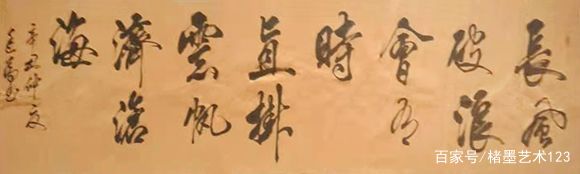 長風
破浪
會有
時
直掛
雲帆
濟滄
海
辛丑仲夏
百家号/楮墨艺术123